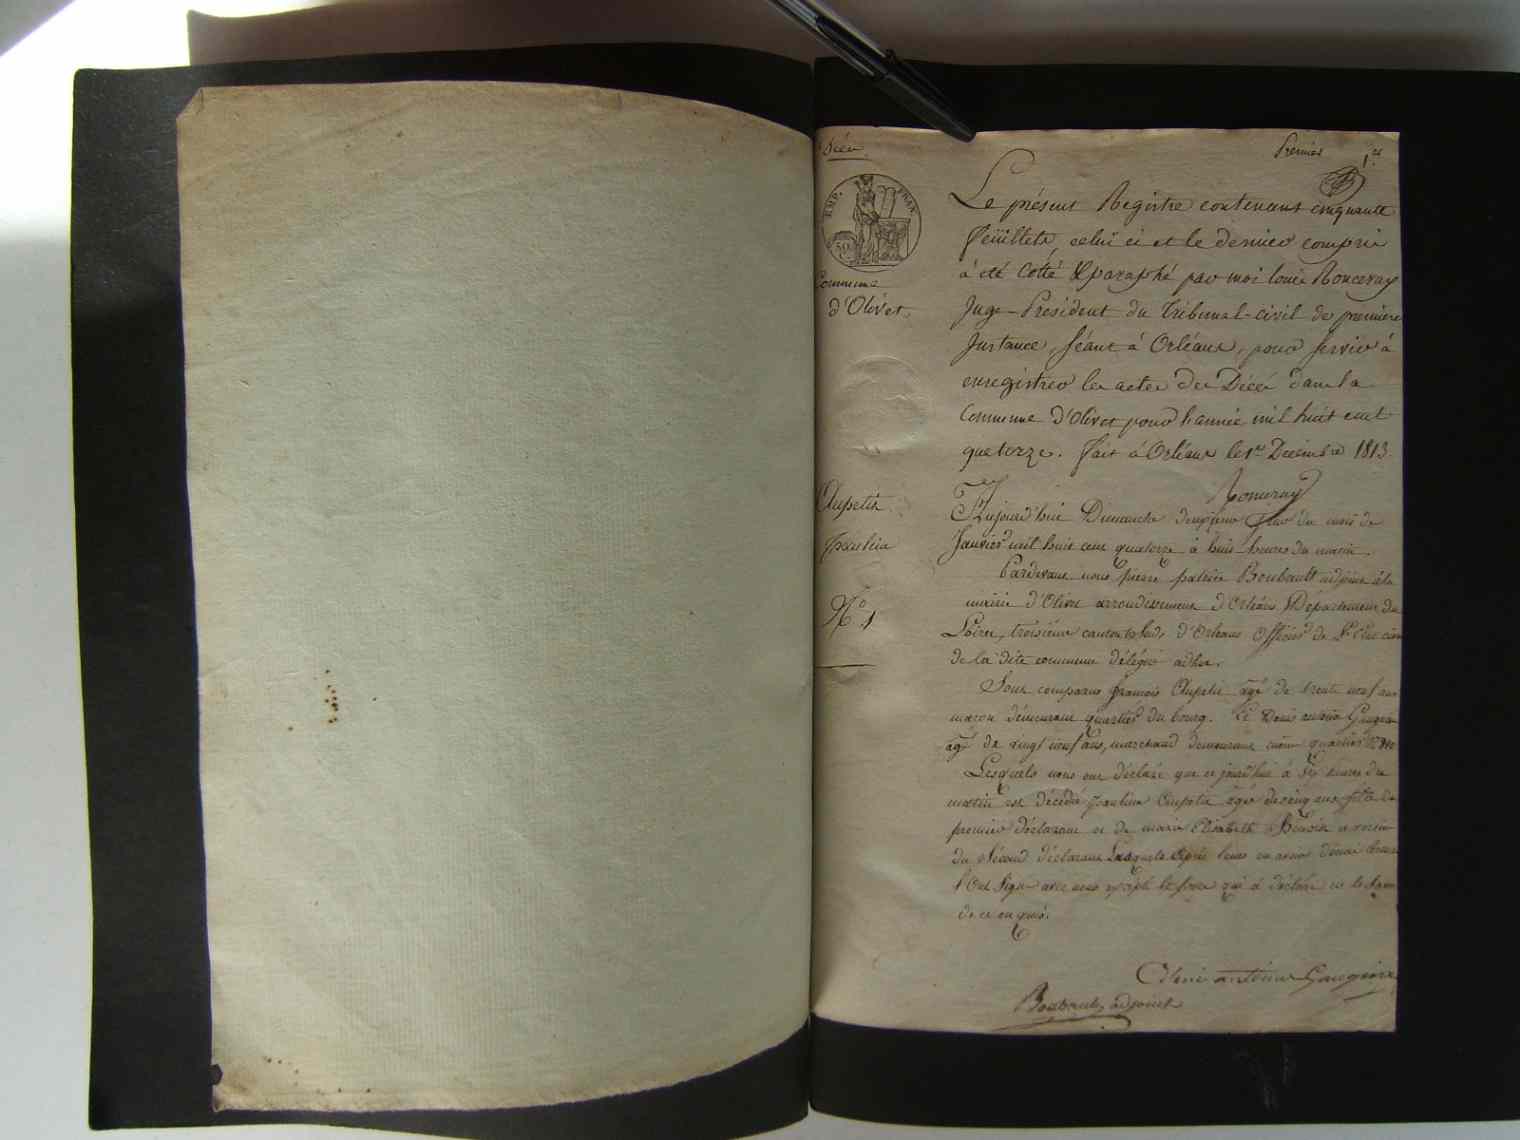 Décès
Premier 1er
EMP. FRAN.
50
Commune
d'Olivet.
Le présent Registre contenant cinquante
feüillets celui ci et le dernier compris
à été Cotté & paraphé par moi louis Ronceray
Juge-Président du Tribunal-civil de première
Instance, séant à Orléans, pour servir à
enregistrer les actes de Décès dans la
Commune d'Olivet pour l'année mil huit cent
quatorze. fait à Orléans le 1er Décembre 1813.
Ronceray
Aupetit
N° 1
Aujourd'hui Dimanche deuxième jour du mois de
Janvier mil huit cent quatorze à huit heures du matin.
Pardevant nous pierre patrice Boubault adjoint à la
mairie d'Olivet arrondissement d'Orléans Département du
Loiret, troisième canton d'Orléans Officier de l'état civil
de la dite commune délégué adhoc.
Sont comparus françois Aupetit agé de trente neuf ans
macon demeurant quartier du bourg. Et Denis antoine
agé de vingt neuf ans, marchand demeurant même quartier
Lesquels nous ont déclaré que ce jourd'hui à six heures du
matin est décédé Aupetit agé de cinq ans fils du
premier déclarant et de marie Elisabeth Benoist et voisin
du Second déclarant Lesquels après leur en avoir donné lecture
l'Ont Signé avec nous excepté le père qui a déclaré ne le savoir
de ce enquis.
Denis antoine
Boubault adjoint